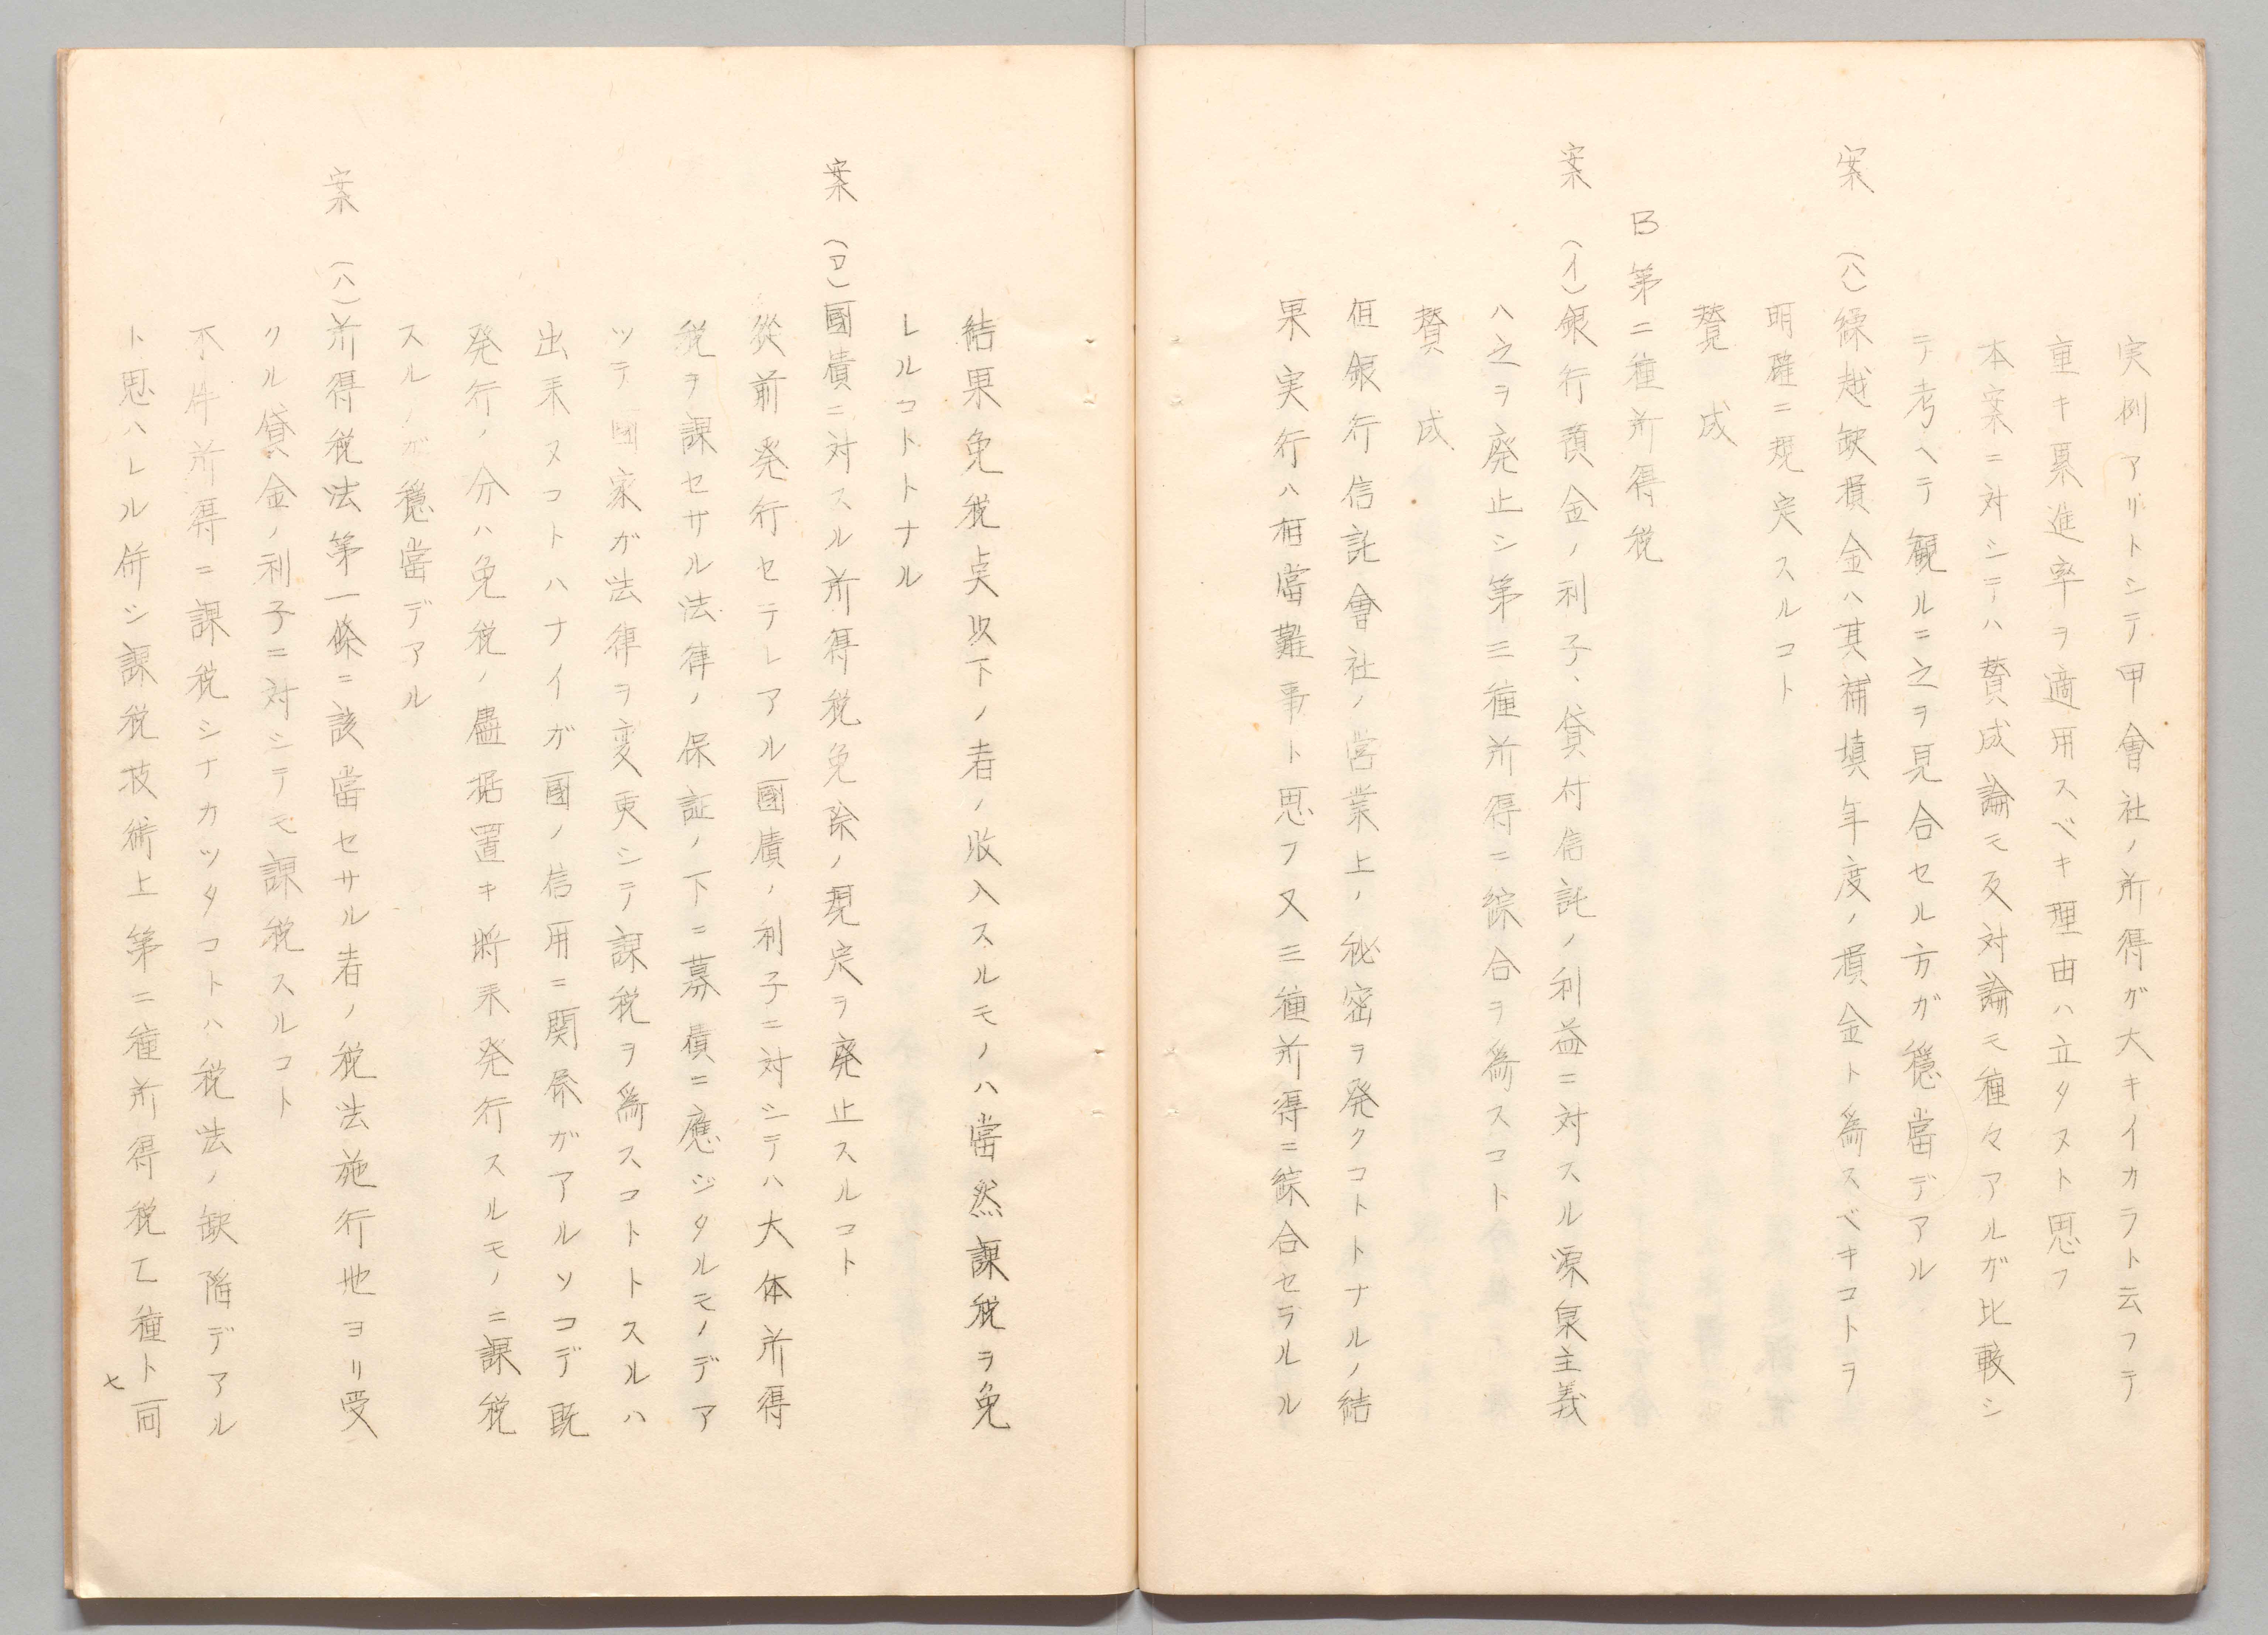 実例アリトシテ甲會社ノ所得ガ大キイカラト云フテ
重キ累進率ヲ適用スベキ理由ハ立タヌト思フ
本案ニ対シテハ賛成論モ反対論モ種々アルガ比較シ
テ考ヘテ観ルニ之ヲ見合セル方ガ穏當デアル
案 (ハ)繰越缺損金ハ其補填年度ノ損金ト爲スベキコトヲ
明確ニ規定スルコト
賛成
B 第二種所得税
案 (イ)銀行預金ノ利子、貸付信託ノ利益ニ対スル源泉主義
ハ之ヲ廃止シ第三種所得ニ綜合ヲ爲スコト
賛成
但銀行信託會社ノ営業上ノ秘密ヲ発クコトトナルノ結
果実行ハ相當難事ト思フ又三種所得ニ綜合セラルル
結果免税点以下ノ者ノ收入スルモノハ當然課税ヲ免
レルコトトナル
案 (ロ)國債ニ対スル所得税免除ノ規定ヲ廃止スルコト
從前発行セラレアル國債ノ利子ニ対シテハ大体所得
税ヲ課セザル法律ノ保証ノ下ニ募債ニ應ジタルモノデア
ツテ國家ガ法律ヲ変更シテ課税ヲ爲スコトトスルハ
出来ヌコトハナイガ國ノ信用ニ関係ガアルソコデ既
発行ノ分ハ免税ノ儘据置キ將来発行スルモノニ課税
スルノガ穏當デアル
案 (ハ)所得税法第一條ニ該當セサル者ノ税法施行地ヨリ受
クル貸金ノ利子ニ対シテモ課税スルコト
本件所得ニ課税シナカツタコトハ税法ノ缺陥デアル
ト思ハレル併シ課税技術上第二種所得税乙種ト同
七